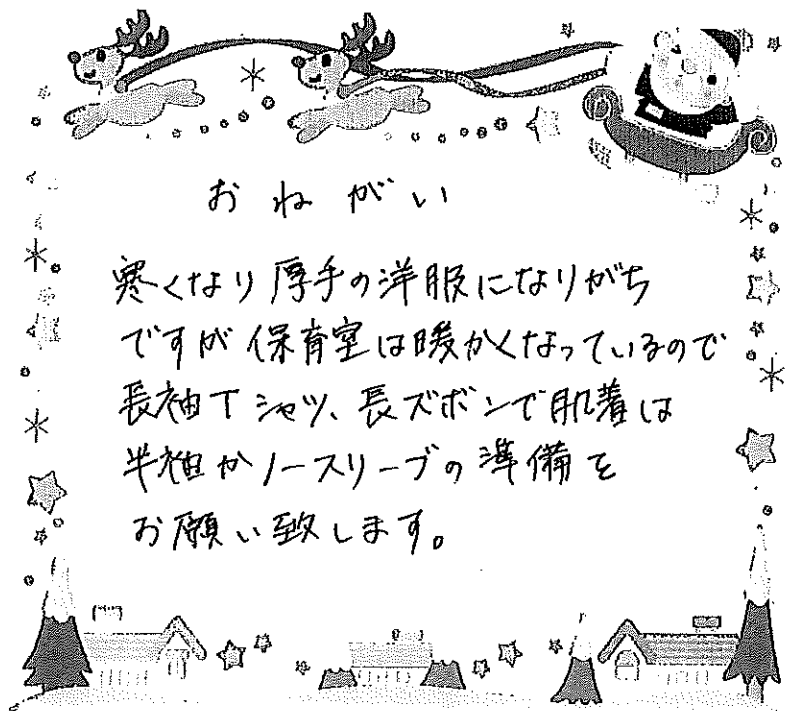 おねがい
寒くなり厚手の洋服になりがち
ですが保育室は暖かくなっているので
長袖Tシャツ、長ズボンで肌着は
半袖かノースリーブの準備を
お願い致します。